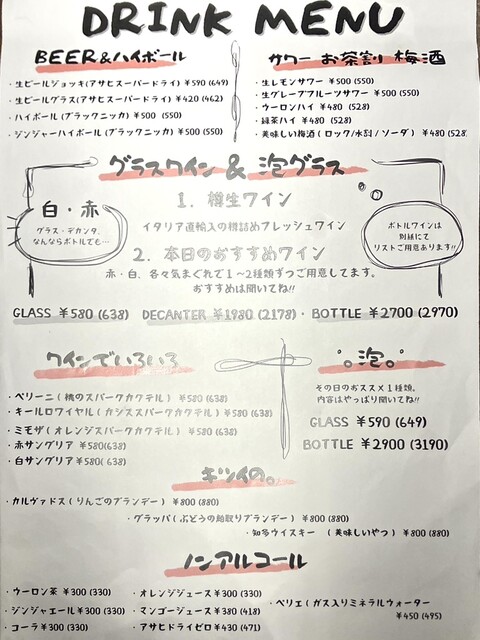 DRINK MENU
BEER&ハイボール
・生ビールジョッキ(アサヒスーパードライ) ¥590 (649)
・生ビールグラス(アサヒスーパードライ) ¥420 (462)
・ハイボール (ブラックニッカ) ¥500 (550)
・ジンジャーハイボール (ブラックニッカ) ¥500 (550)
サワー お茶割り 梅酒
・生レモンサワー ¥500 (550)
・生グレープフルーツサワー ¥500 (550)
・ウーロンハイ ¥480 (528)
・緑茶ハイ ¥480 (528)
・美味しい梅酒 ( ロック/水割 / ソーダ ) ¥480 (528
グラスワイン & 泡グラス
白・赤
グラス・デカンタ、
なんならボトルでも…
1. 樽生ワイン
イタリア直輸入の樽詰めフレッシュワイン
2. 本日のおすすめワイン
赤・白、各々気まぐれで1~2種類ずつご用意してます。
おすすめは聞いてね!!
ボトルワインは
別紙にて
リストご用意あります!!
GLASS ¥580 (638) DECANTER ¥1980 (2178)・BOTTLE ¥2700 (2970)
ワインでいろいろ
・ベリーニ ( 桃のスパークカクテル ) ¥580 (638)
・キールロワイヤル ( カシススパークカクテル ) ¥580 (638)
・ミモザ ( オレンジスパークカクテル ) ¥580 (638)
・赤サングリア ¥580(638)
・白サングリア ¥580( 638)
°。泡。°
その日のおススメ1種類。
内容はやっぱり聞いてね!!
GLASS ¥590 (649)
BOTTLE ¥2900 (3190)
キツイの。
・カルヴァドス ( りんごのブランデー ) ¥800 (880)
・グラッパ ( ぶどうの粕取りブランデー ) ¥800 (880)
・知多ウイスキー ( 美味しいやつ ) ¥800 (880)
ノンアルコール
・ウーロン茶 ¥300 (330)
・ジンジャエール¥300 (330)
・コーラ ¥300 (330)
・オレンジジュース¥300 (330)
・マンゴージュース¥380 (418)
・アサヒドライゼロ¥430 (471)
・ペリエ ( ガス入りミネラルウォーター
¥450 (495)